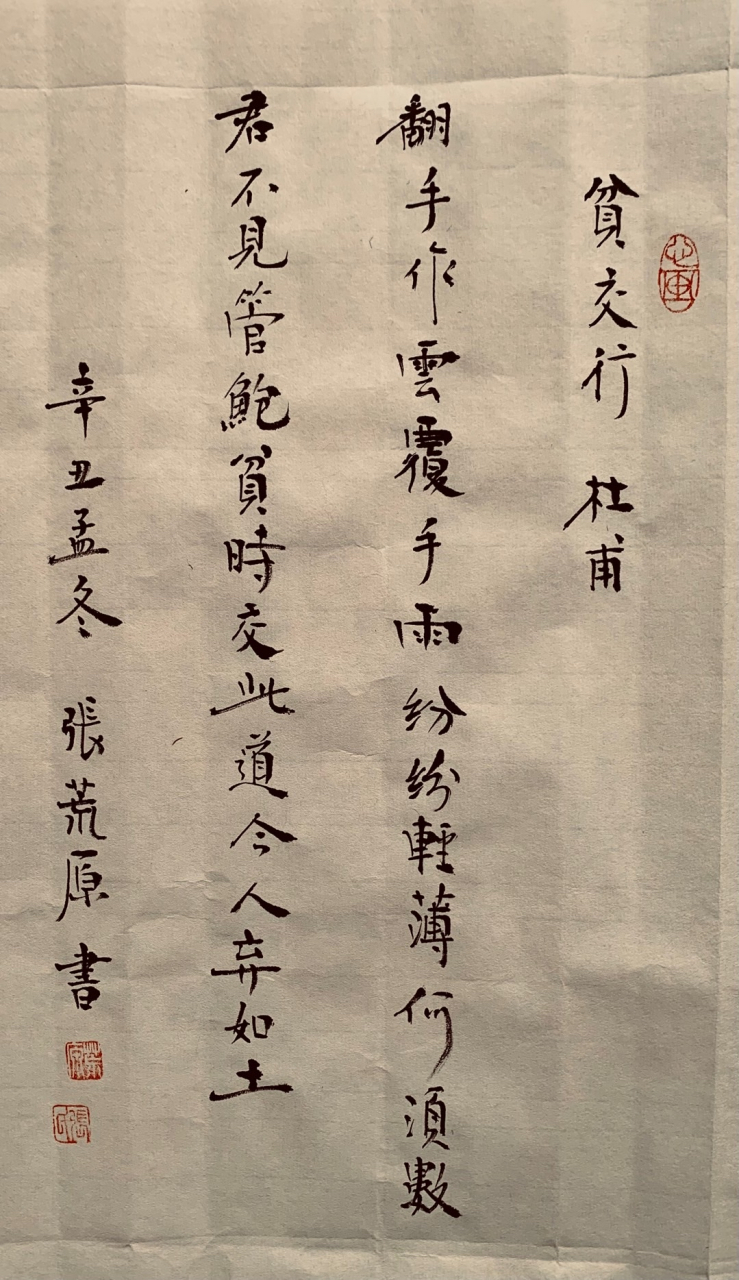 貧交行 杜甫
翻手作雲覆手雨紛紛輕薄何須數
君不見管鮑貧時交此道今人弃如土
辛丑孟冬 張荒原書